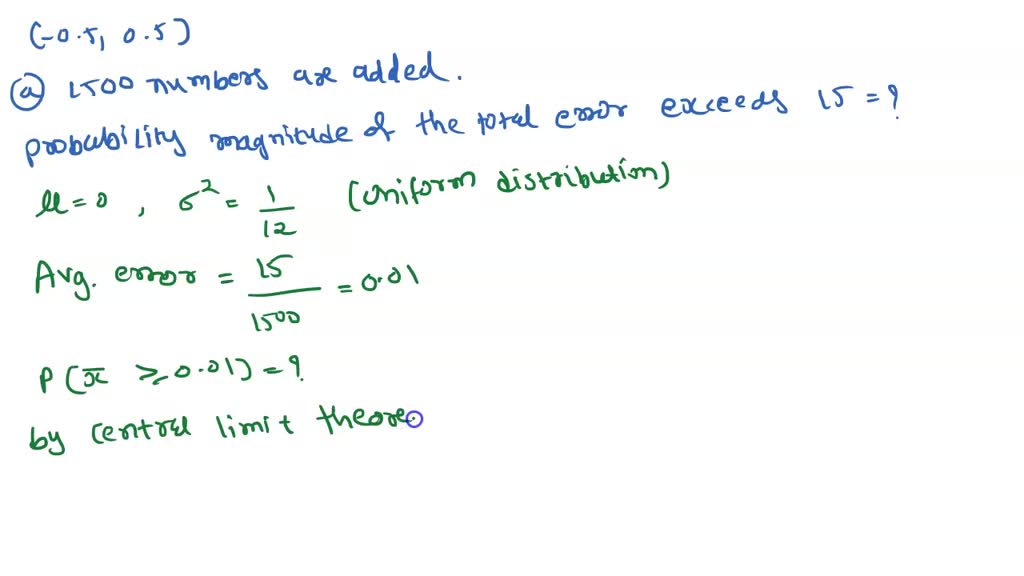 (-0.5, 0.5)
(a) 1500 numbers are added.
probability magnitude of the total error exceeds 15 = ?
μ = 0 , σ² = 1/12 (Uniform distribution)
Avg. error = 15/1500 = 0.01
P(x̄ ≥ 0.01) = ?
by central limit theore